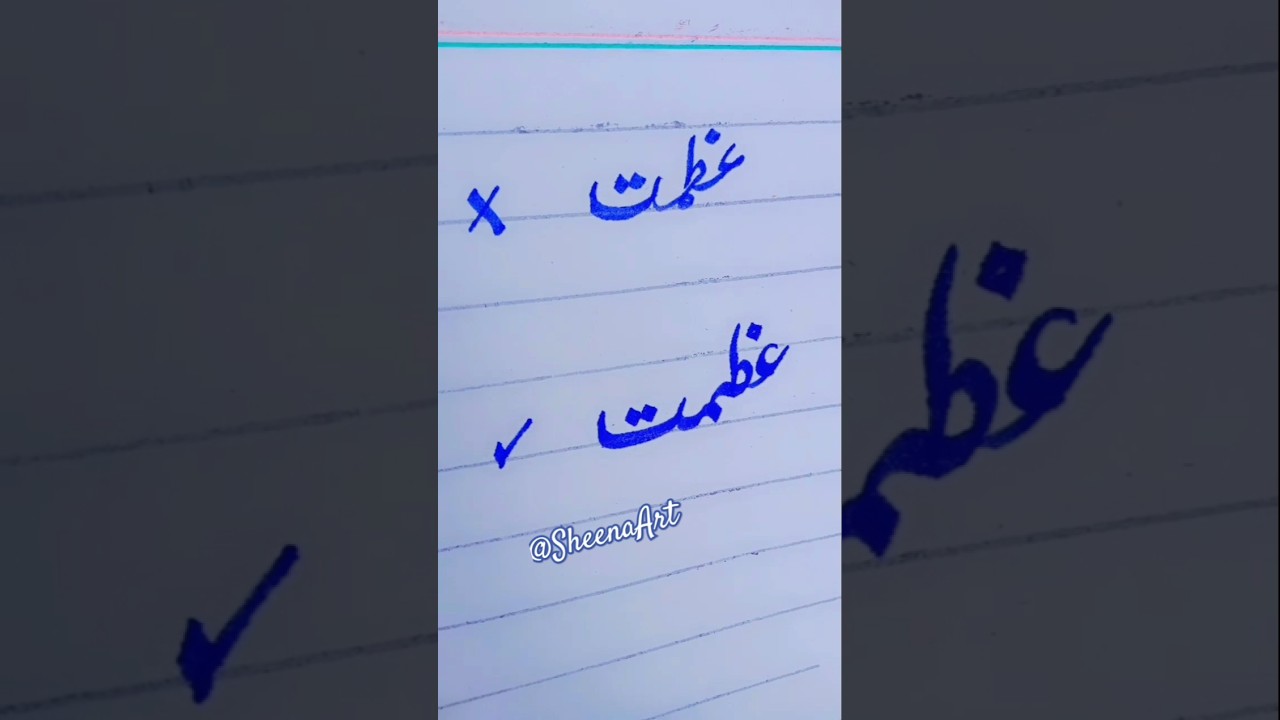 عظمت x
عظمت ✓
@SheenaArt